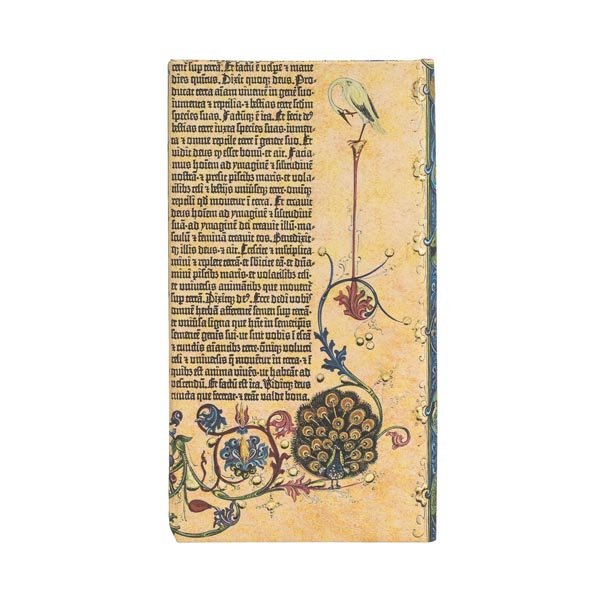 sup terrā. Et factū ē vespe ⁊ mane
dies quītus. Dixit quoq; deus. Pro-
ducat terra aīam viventē in genē suo·
iumenta ⁊ reptilia· ⁊ bestias terre scdm
species suas. Factūq; ē ita. Et fecit de⁹
bestias terre iuxta species suas· iumen-
ta ⁊ omne reptile terre ī genere suo. Et
vidit deus qp esset bonū· et ait. Facia-
mus hoīem ad ymaginē ⁊ silitudinē
nostrā· ⁊ presit piscibȝ maris· et vola-
tilibȝ celi ⁊ bestijs universeq; terre· omīq;
reptili qd movetur ī terra. Et creavit
deus hoīem ad ymaginē ⁊ silitudinē
suā· ad ymaginē dei creavit illū· ma-
sculū ⁊ feminā creavit eos. Benedixit-
q; illis deus· ⁊ ait. Crescite ⁊ mltiplica-
mini ⁊ replete terrā· et subicite eā· et dnā-
mini piscibȝ maris· et volatilibȝ celi·
et universis animātibȝ que moventur
sup terrā. Dixitq; de⁹. Ecce dedi vobis
omnē herbā afferentē semen sup terrā·
et universa ligna que hnt in semetipsis
sementē genis sui· ut sint vobis ī escā
⁊ cunctis aīantibȝ terre· omīq; volucri
celi ⁊ universis q̄ moventur in terra· ⁊ ī
quibȝ est anima vivēs· ut habeāt ad
vescendū. Et factū est ita. Viditq; deus
cuncta que fecerat· ⁊ erāt valde bona.